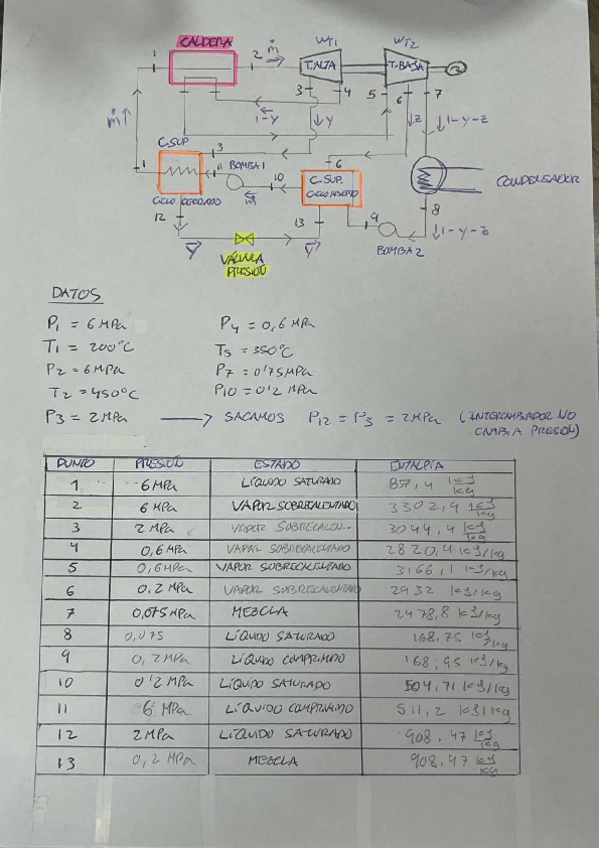 CALDERA
1
2
ṁ
WT1
T.ALTA
WT2
T.BAJA
3
4
5
6
7
ṁ↑
1-Y
↓Y
↓Z
↓1-Y-Z
C.SUP
3
1
11
BOMBA 1
10
ṁ
6
C. SUP.
CICLO ABIERTO
CONDENSADOR
CICLO CERRADO
12
13
9
8
BOMBA 2
↓1-Y-Z
Y
VÁLVULA
PRESIÓN
Y
DATOS
P1 = 6 MPa
P4 = 0,6 MPa
T1 = 200°C
T5 = 350°C
P2 = 6 MPa
P7 = 0'75 MPa
T2 = 450°C
P10 = 0'2 MPa
P3 = 2 MPa → SACAMOS P12 = P3 = 2 MPa (INTERCAMBIADOR NO
CAMBIA PRESIÓN)
PUNTO PRESIÓN ESTADO ENTALPÍA
1 6 MPa LÍQUIDO SATURADO 87,4 kJ/kg
2 6 MPa VAPOR SOBRECALENTADO 3302,9 kJ/kg
3 2 MPa VAPOR SOBRECALEN.. 3044,4 kJ/kg
4 0,6 MPa VAPOR SOBRECALENTADO 2820,4 kJ/kg
5 0,6 MPa VAPOR SOBRECALENTADO 3166,1 kJ/kg
6 0.2 MPa VAPOR SOBRECALENTADO 2932 kJ/kg
7 0,075 MPa MEZCLA 2478,8 kJ/kg
8 0,075 LÍQUIDO SATURADO 168,75 kJ/kg
9 0,2 MPa LÍQUIDO COMPRIMIDO 168,95 kJ/kg
10 0'2 MPa LÍQUIDO SATURADO 504,71 kJ/kg
11 6 MPa LÍQUIDO COMPRIMIDO 511,2 kJ/kg
12 2 MPa LÍQUIDO SATURADO 908,47 kJ/kg
13 0,2 MPa MEZCLA 908,47 kJ/kg